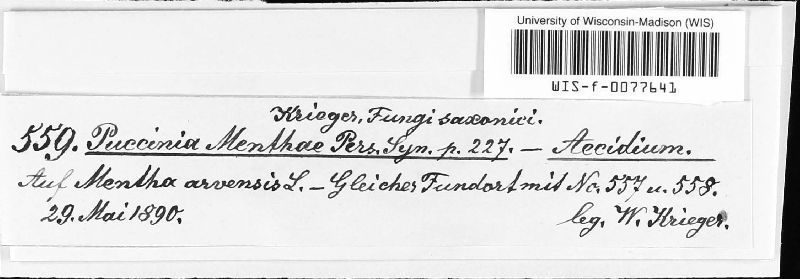 University of Wisconsin-Madison (WIS)
WIS-f-0077641
Krieger, Fungi saxonici.
559. Puccinia Menthae Pers. Syn. p. 227. — Aecidium.
Auf Mentha arvensis L. — Gleicher Fundort mit No. 557 u. 558.
29. Mai 1890.
leg. W. Krieger.